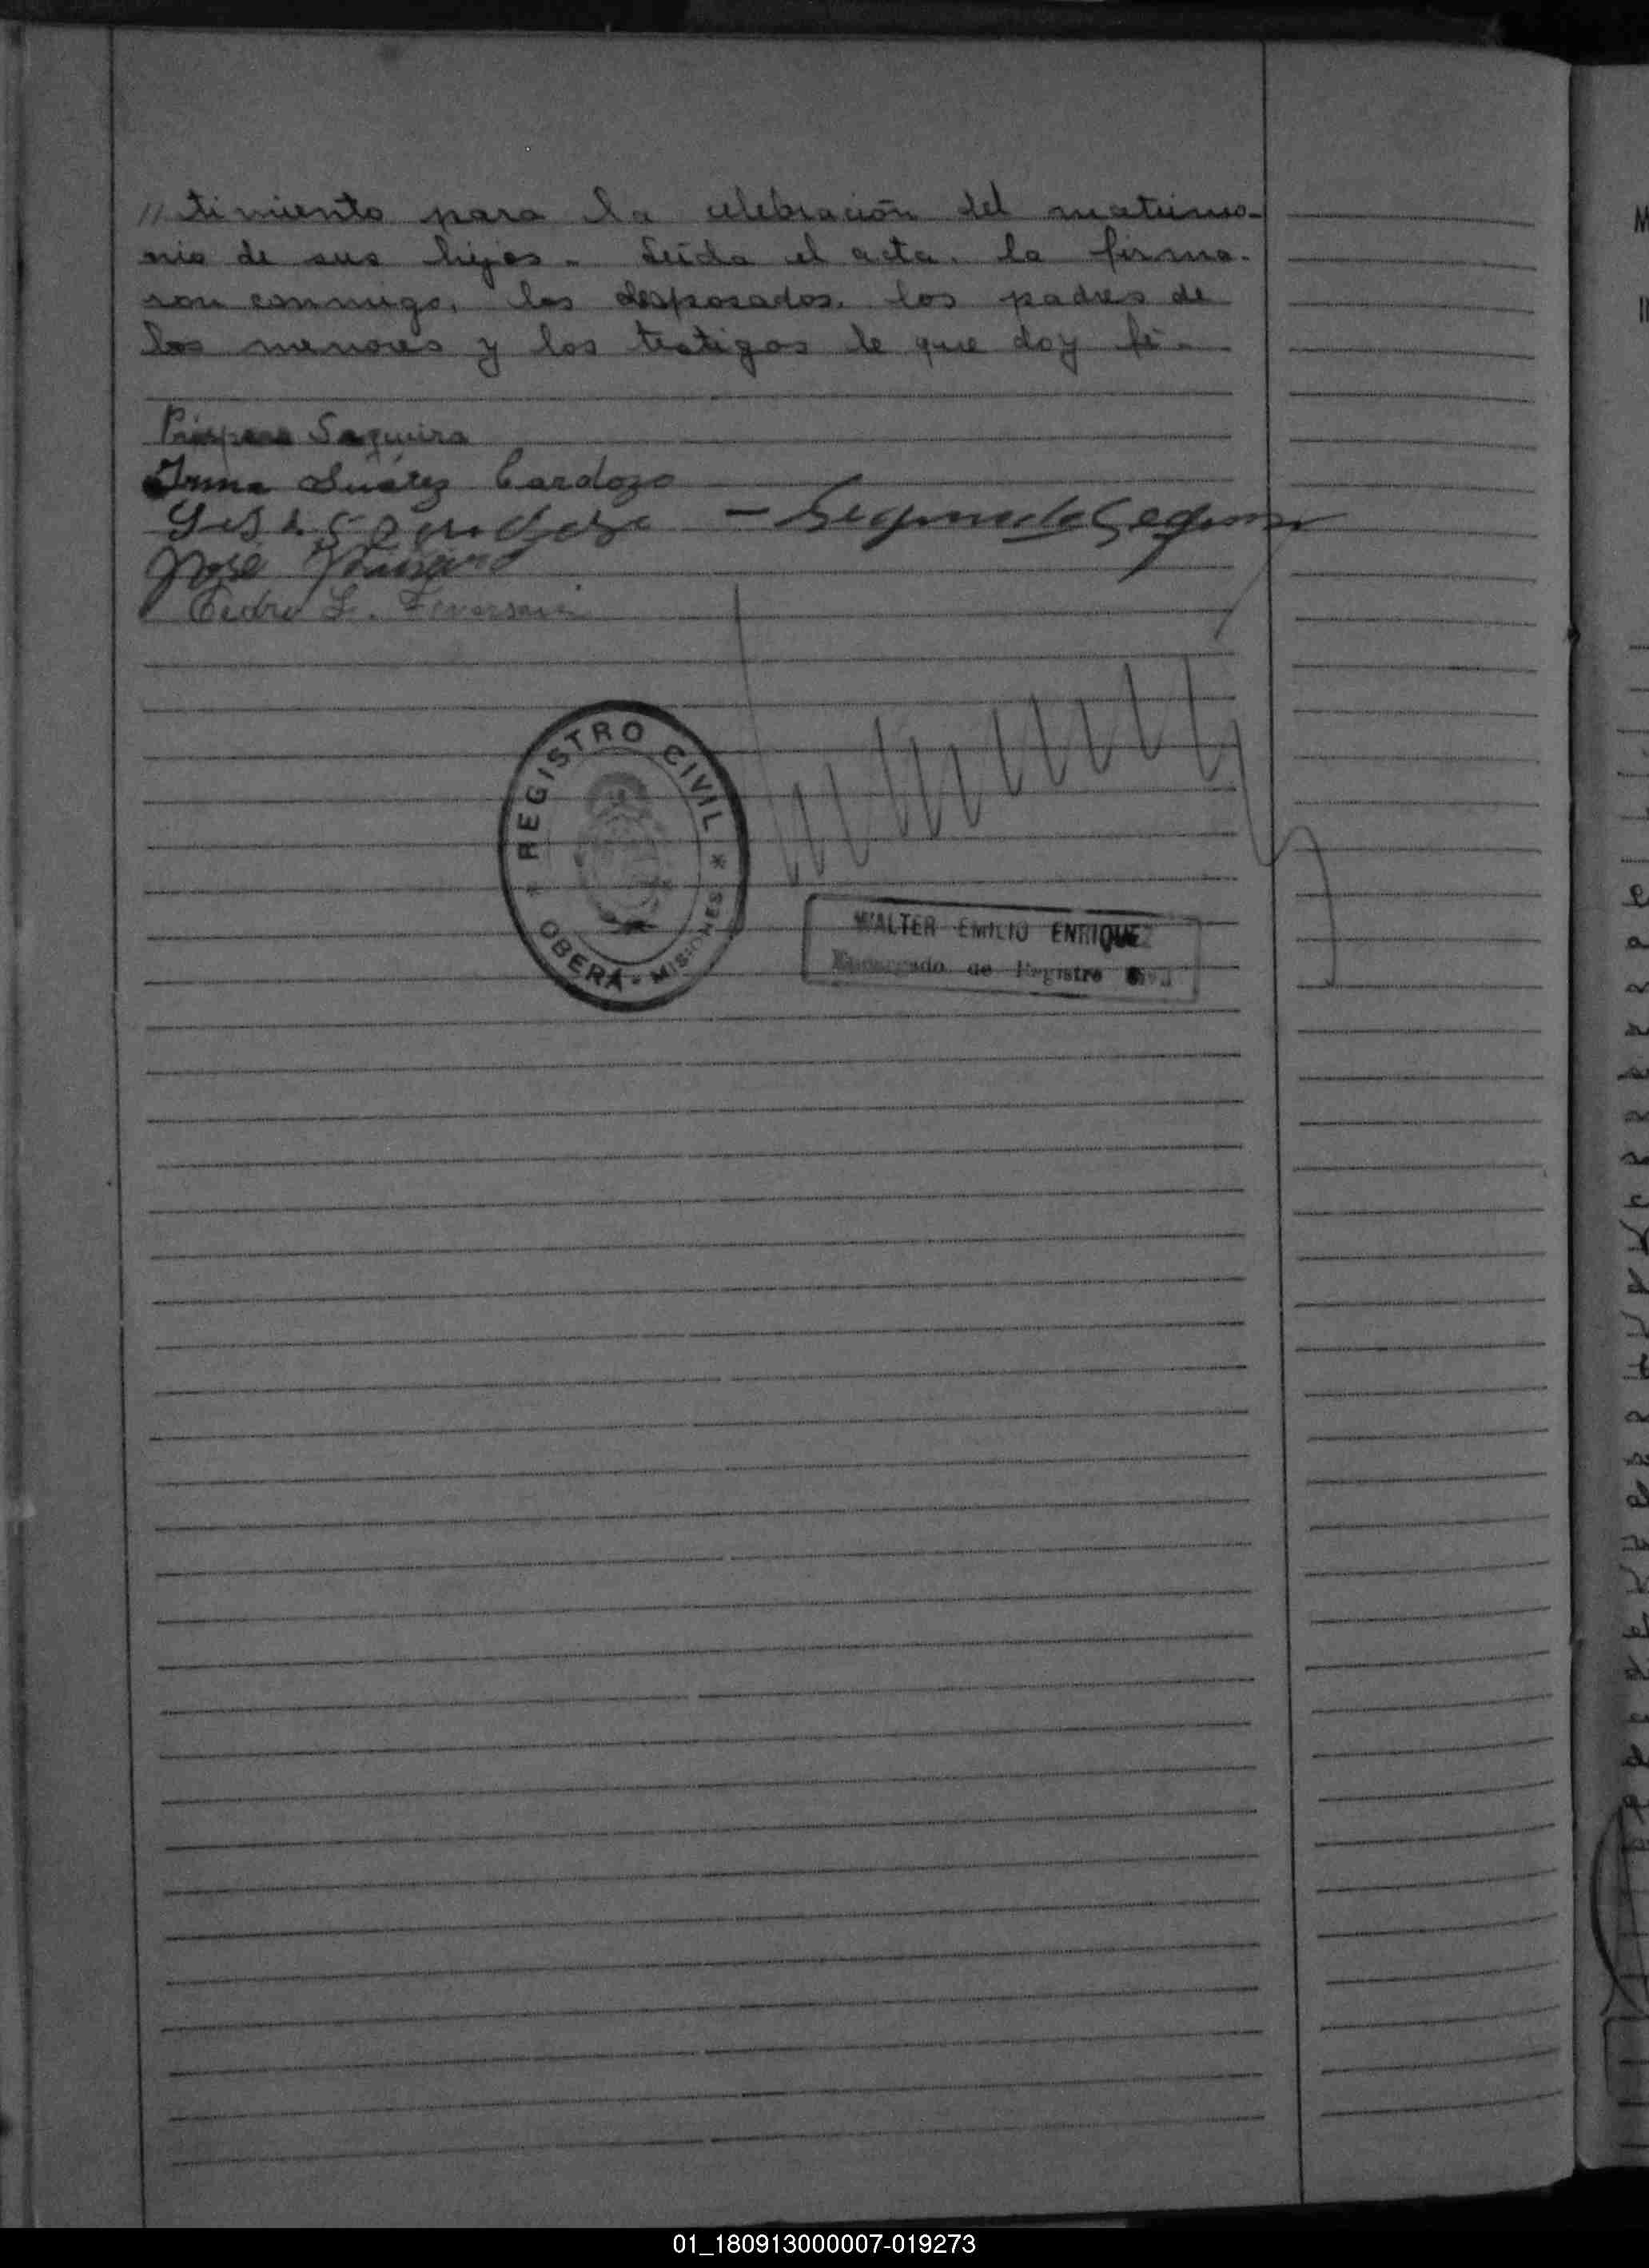 // timiento para la celebración del matrimo-
nio de sus hijos - Leída el acta, la firma-
ron conmigo, los desposados, los padres de
los menores y los testigos de que doy fé -
Sequeira
Irma Suárez Cardozo
Segundo Sequeira
José
Pedro L.
REGISTRO CIVIL
OBERÁ - MISIONES
WALTER EMILIO ENRIQUEZ
Encargado de Registro Civil
01_180913000007-019273